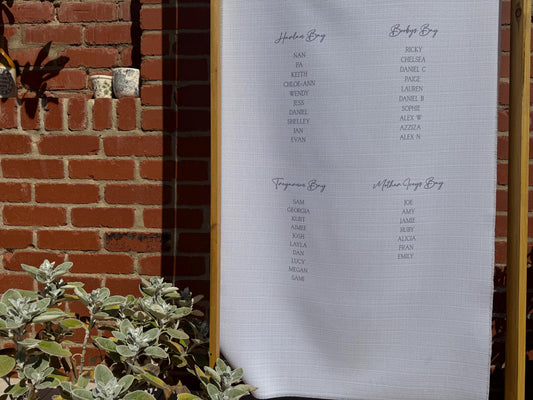 Harlem Bay
NAN
PA
KEITH
CHLOE-ANN
WENDY
JESS
DANIEL
SHELLEY
IAN
EVAN
Boobys Bay
RICKY
CHELSEA
DANIEL C
PAIGE
LAUREN
DANIEL B
SOPHIE
ALEX W
AZZIZA
ALEX N
Treyarnon Bay
SAM
GEORGIA
KURT
AIMEE
JOSH
LAYLA
DAN
LUCY
MEGAN
SAMI
Mother Iveys Bay
JOE
AMY
JAMIE
RUBY
ALICIA
FRAN
EMILY